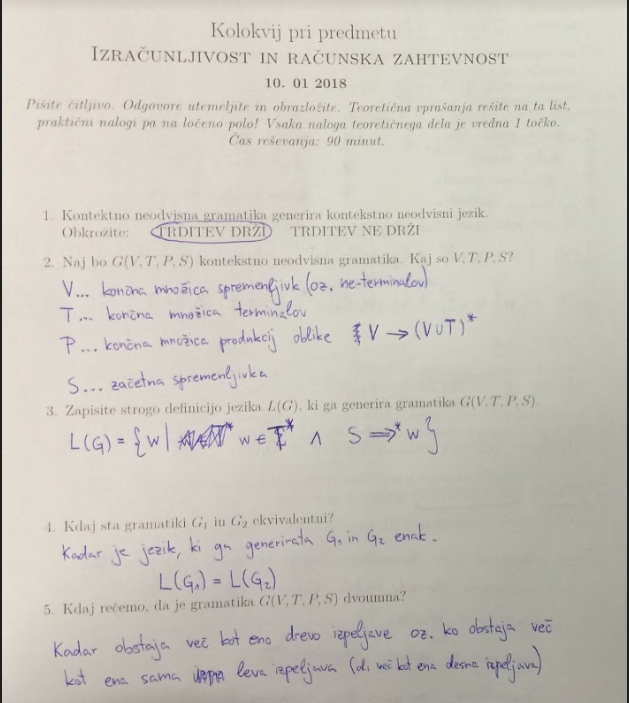 Kolokvij pri predmetu
IZRAČUNLJIVOST IN RAČUNSKA ZAHTEVNOST
10. 01 2018
Pišite čitljivo. Odgovore utemeljite in obrazložite. Teoretična vprašanja rešite na ta list,
praktični nalogi pa na ločeno polo! Vsaka naloga teoretičnega dela je vredna 1 točko.
Čas reševanja: 90 minut.
1. Kontektno neodvisna gramatika generira kontekstno neodvisni jezik.
Obkrožite: TRDITEV DRŽI TRDITEV NE DRŽI
2. Naj bo G(V, T, P, S) kontekstno neodvisna gramatika. Kaj so V, T, P, S?
V... končna množica spremenljivk (oz. ne-terminalov)
T... končna množica terminalov
P... končna množica produkcij oblike V → (V∪T)*
S... začetna spremenljivka
3. Zapišite strogo definicijo jezika L(G), ki ga generira gramatika G(V, T, P, S).
L(G) = {w | w ∈ T* ∧ S ⇒* w}
4. Kdaj sta gramatiki G₁ in G₂ ekvivalentni?
Kadar je jezik, ki ga generirata G₁ in G₂ enak.
L(G₁) = L(G₂)
5. Kdaj rečemo, da je gramatika G(V, T, P, S) dvoumna?
Kadar obstaja več kot eno drevo izpeljave oz. ko obstaja več
kot ena sama leva izpeljava (ali več kot ena desna izpeljava)